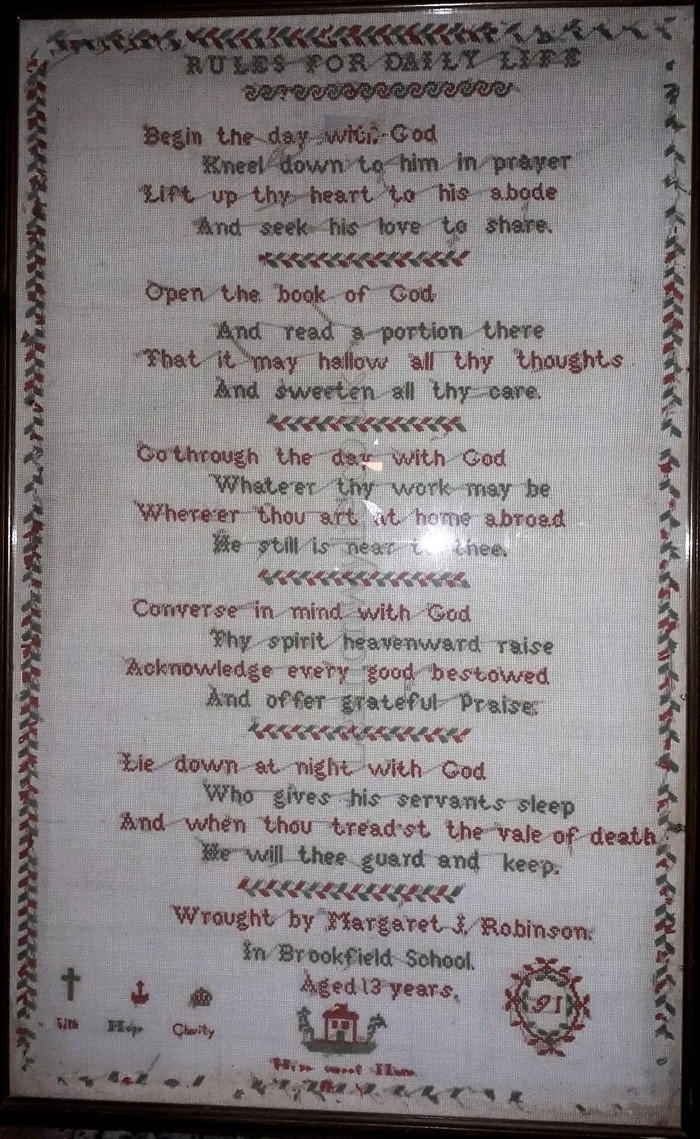 RULES FOR DAILY LIFE
Begin the day with God
Kneel down to him in prayer
Lift up thy heart to his abode
And seek his love to share.
Open the book of God
And read a portion there
That it may hallow all thy thoughts
And sweeten all thy care.
Go through the day with God
Whate'er thy work may be
Where'er thou art at home abroad
He still is near to thee.
Converse in mind with God
Thy spirit heavenward raise
Acknowledge every good bestowed
And offer grateful Praise.
Lie down at night with God
Who gives his servants sleep
And when thou tread'st the vale of death
He will thee guard and keep.
Wrought by Margaret J. Robinson.
In Brookfield School.
Aged 13 years.
Hope
Charity